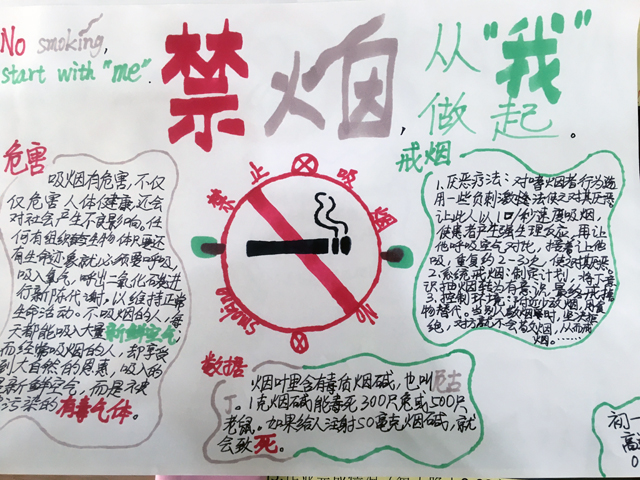 No smoking,
start with "me".
禁烟,
从"我"
做起。
危害
吸烟有危害,不仅
仅危害人体健康还会
对社会产生不良影响。任
何有组织的生物体只要还
有生命迹象就必须要呼吸,
吸入氧气,呼出二氧化碳进
行新陈代谢,以维持正常
生命活动。不吸烟的人,每
天都能吸入大量新鲜空气
而经常吸烟的人,却享受
到大自然的恩惠,吸入的
新鲜空气,而是被
污染的有毒气体。
禁止吸烟
No smoking
戒烟
1.厌恶疗法:对嗜烟者行为选
用一些负刺激法使之对其厌恶
让此人以1口/秒速度吸烟,
使患者产生强生理反应,再让
他呼吸空气对比,接着让他
吸,重复约2-3次,使对其厌恶
2.系统戒烟:制定计划,将下意
识抽烟转为有意识,
3.控制环境:附近少放烟,
物替代。当别人敬烟时,坚决拒
绝,对方就不会再发烟,从而戒
烟。……
数据
烟叶里含有毒质烟碱,也叫尼古
丁。1克烟碱能毒死300只兔或500只
老鼠。如果给人注射50毫克烟碱,就
会致死。
初一
高